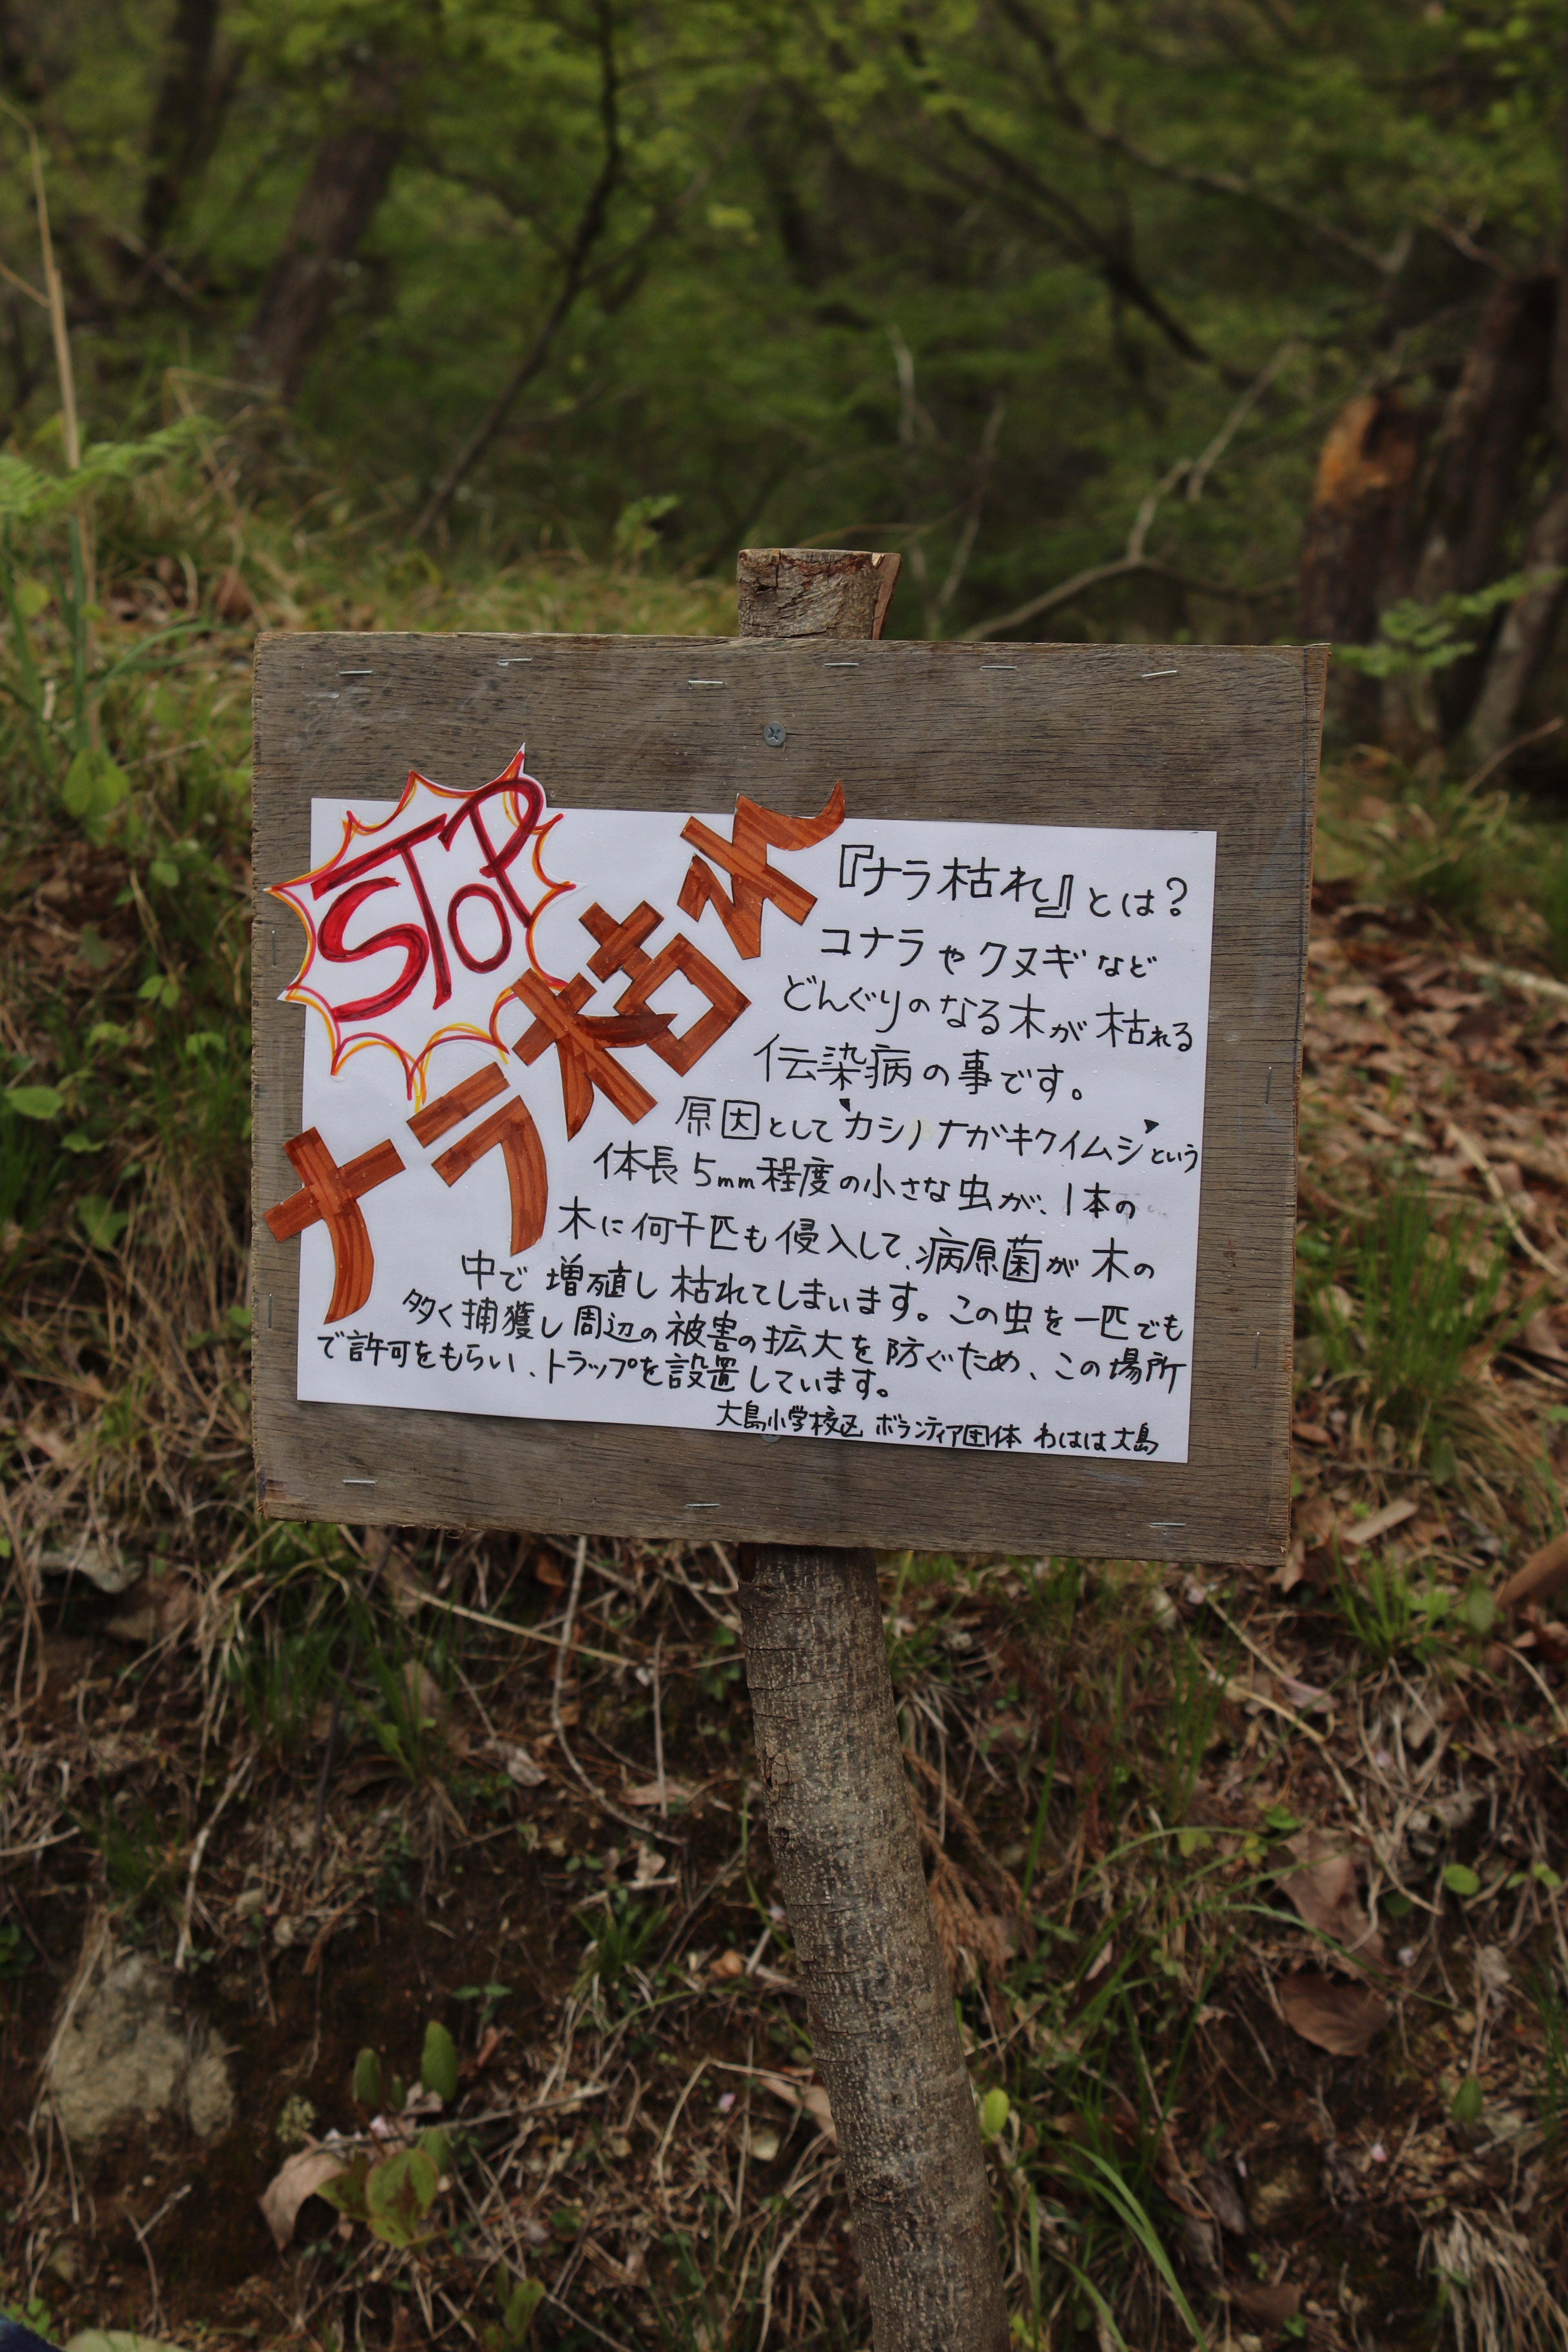 STOP
ナラ枯れ
『ナラ枯れ』とは?
コナラやクヌギなど
どんぐりのなる木が枯れる
伝染病の事です。
原因として"カシノナガキクイムシ"という
体長5mm程度の小さな虫が、1本の
木に何千匹も侵入して、病原菌が木の
中で増殖し枯れてしまいます。この虫を一匹でも
多く捕獲し周辺の被害の拡大を防ぐため、この場所
で許可をもらい、トラップを設置しています。
大島小学校区 ボランティア団体 わはは大島